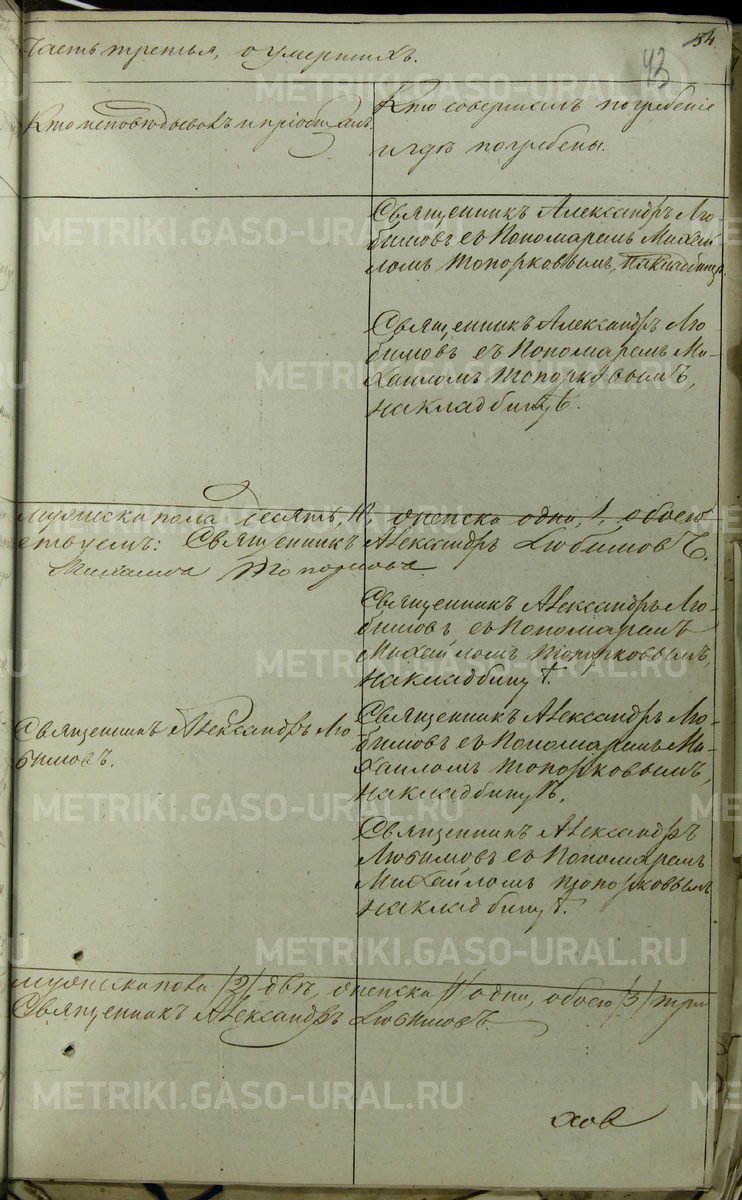 34
43
Часть третья, о умершихъ.
Кто исповѣдывалъ и пріобщалъ.
Кто совершилъ погребеніе
и гдѣ погребены.
Священникъ Александръ Лю-
бимовъ съ Пономаремъ Михаи-
ломъ Топорковымъ, на кладбищѣ.
Священникъ Александръ Лю-
бимовъ съ Пономаремъ Ми-
хаиломъ Топорковымъ,
на кладбищѣ.
Мужеска пола десять, 10, женска одна, 1, обоего
ствуемъ: Священникъ Александръ Любимовъ.
Михаилъ Топорковъ
Священникъ Александръ Лю-
бимовъ съ Пономаремъ
Михайломъ Топорковымъ,
на кладбищѣ.
Священникъ Александръ Лю-
бимовъ.
Священникъ Александръ Лю-
бимовъ съ Пономаремъ Ми-
хаиломъ Топорковымъ,
на кладбищѣ.
Священникъ Александръ
Любимовъ съ Пономаремъ
Михайломъ Топорковымъ
на кладбищѣ.
мужеска пола /2/ двѣ, женска /1/ одна, обоего /3/ три
Священникъ Александръ Любимовъ.
ховъ
METRIKI.GASO-URAL.RU